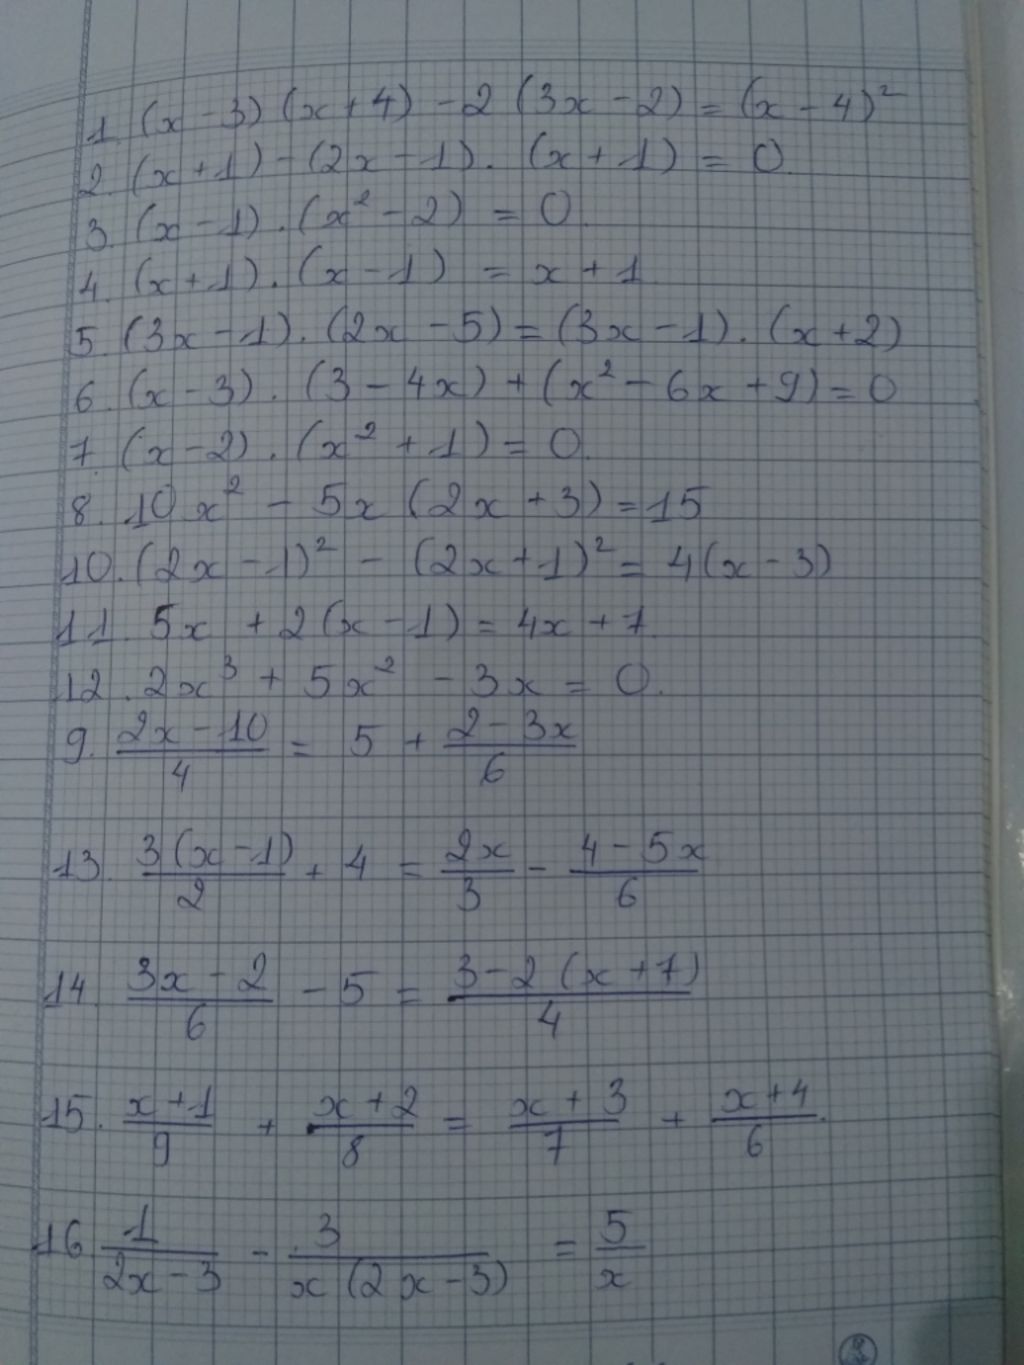 1. (x - 3) (x + 4) - 2 (3x - 2) = (x - 4)²
2. (x + 1) - (2x - 1) . (x + 1) = 0.
3. (x - 1) . (x² - 2) = 0.
4. (x + 1) . (x - 1) = x + 1
5. (3x - 1) . (2x - 5) = (3x - 1) . (x + 2)
6. (x - 3) . (3 - 4x) + (x² - 6x + 9) = 0
7. (x - 2) . (x² + 1) = 0.
8. 10x² - 5x (2x + 3) = 15
10. (2x - 1)² - (2x + 1)² = 4(x - 3)
11. 5x + 2(x - 1) = 4x + 7.
12. 2x³ + 5x² - 3x = 0.
9. (2x - 10)/4 = 5 + (2 - 3x)/6
13. 3(x - 1)/2 + 4 = 2x/3 - (4 - 5x)/6
14. (3x - 2)/6 - 5 = (3 - 2(x + 7))/4
15. (x + 1)/9 + (x + 2)/8 = (x + 3)/7 + (x + 4)/6.
16 1/(2x - 3) - 3/(x(2x - 3)) = 5/x